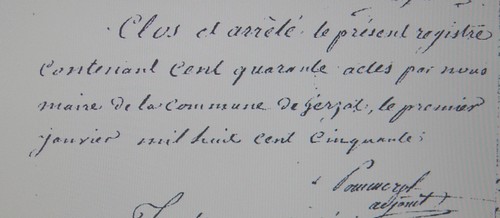 Clos et arrêté le présent registre
contenant cent quarante actes par nous
maire de la Commune de Gerzat, le premier
janvier mil huit cent cinquante.
Pommerol
adjoint